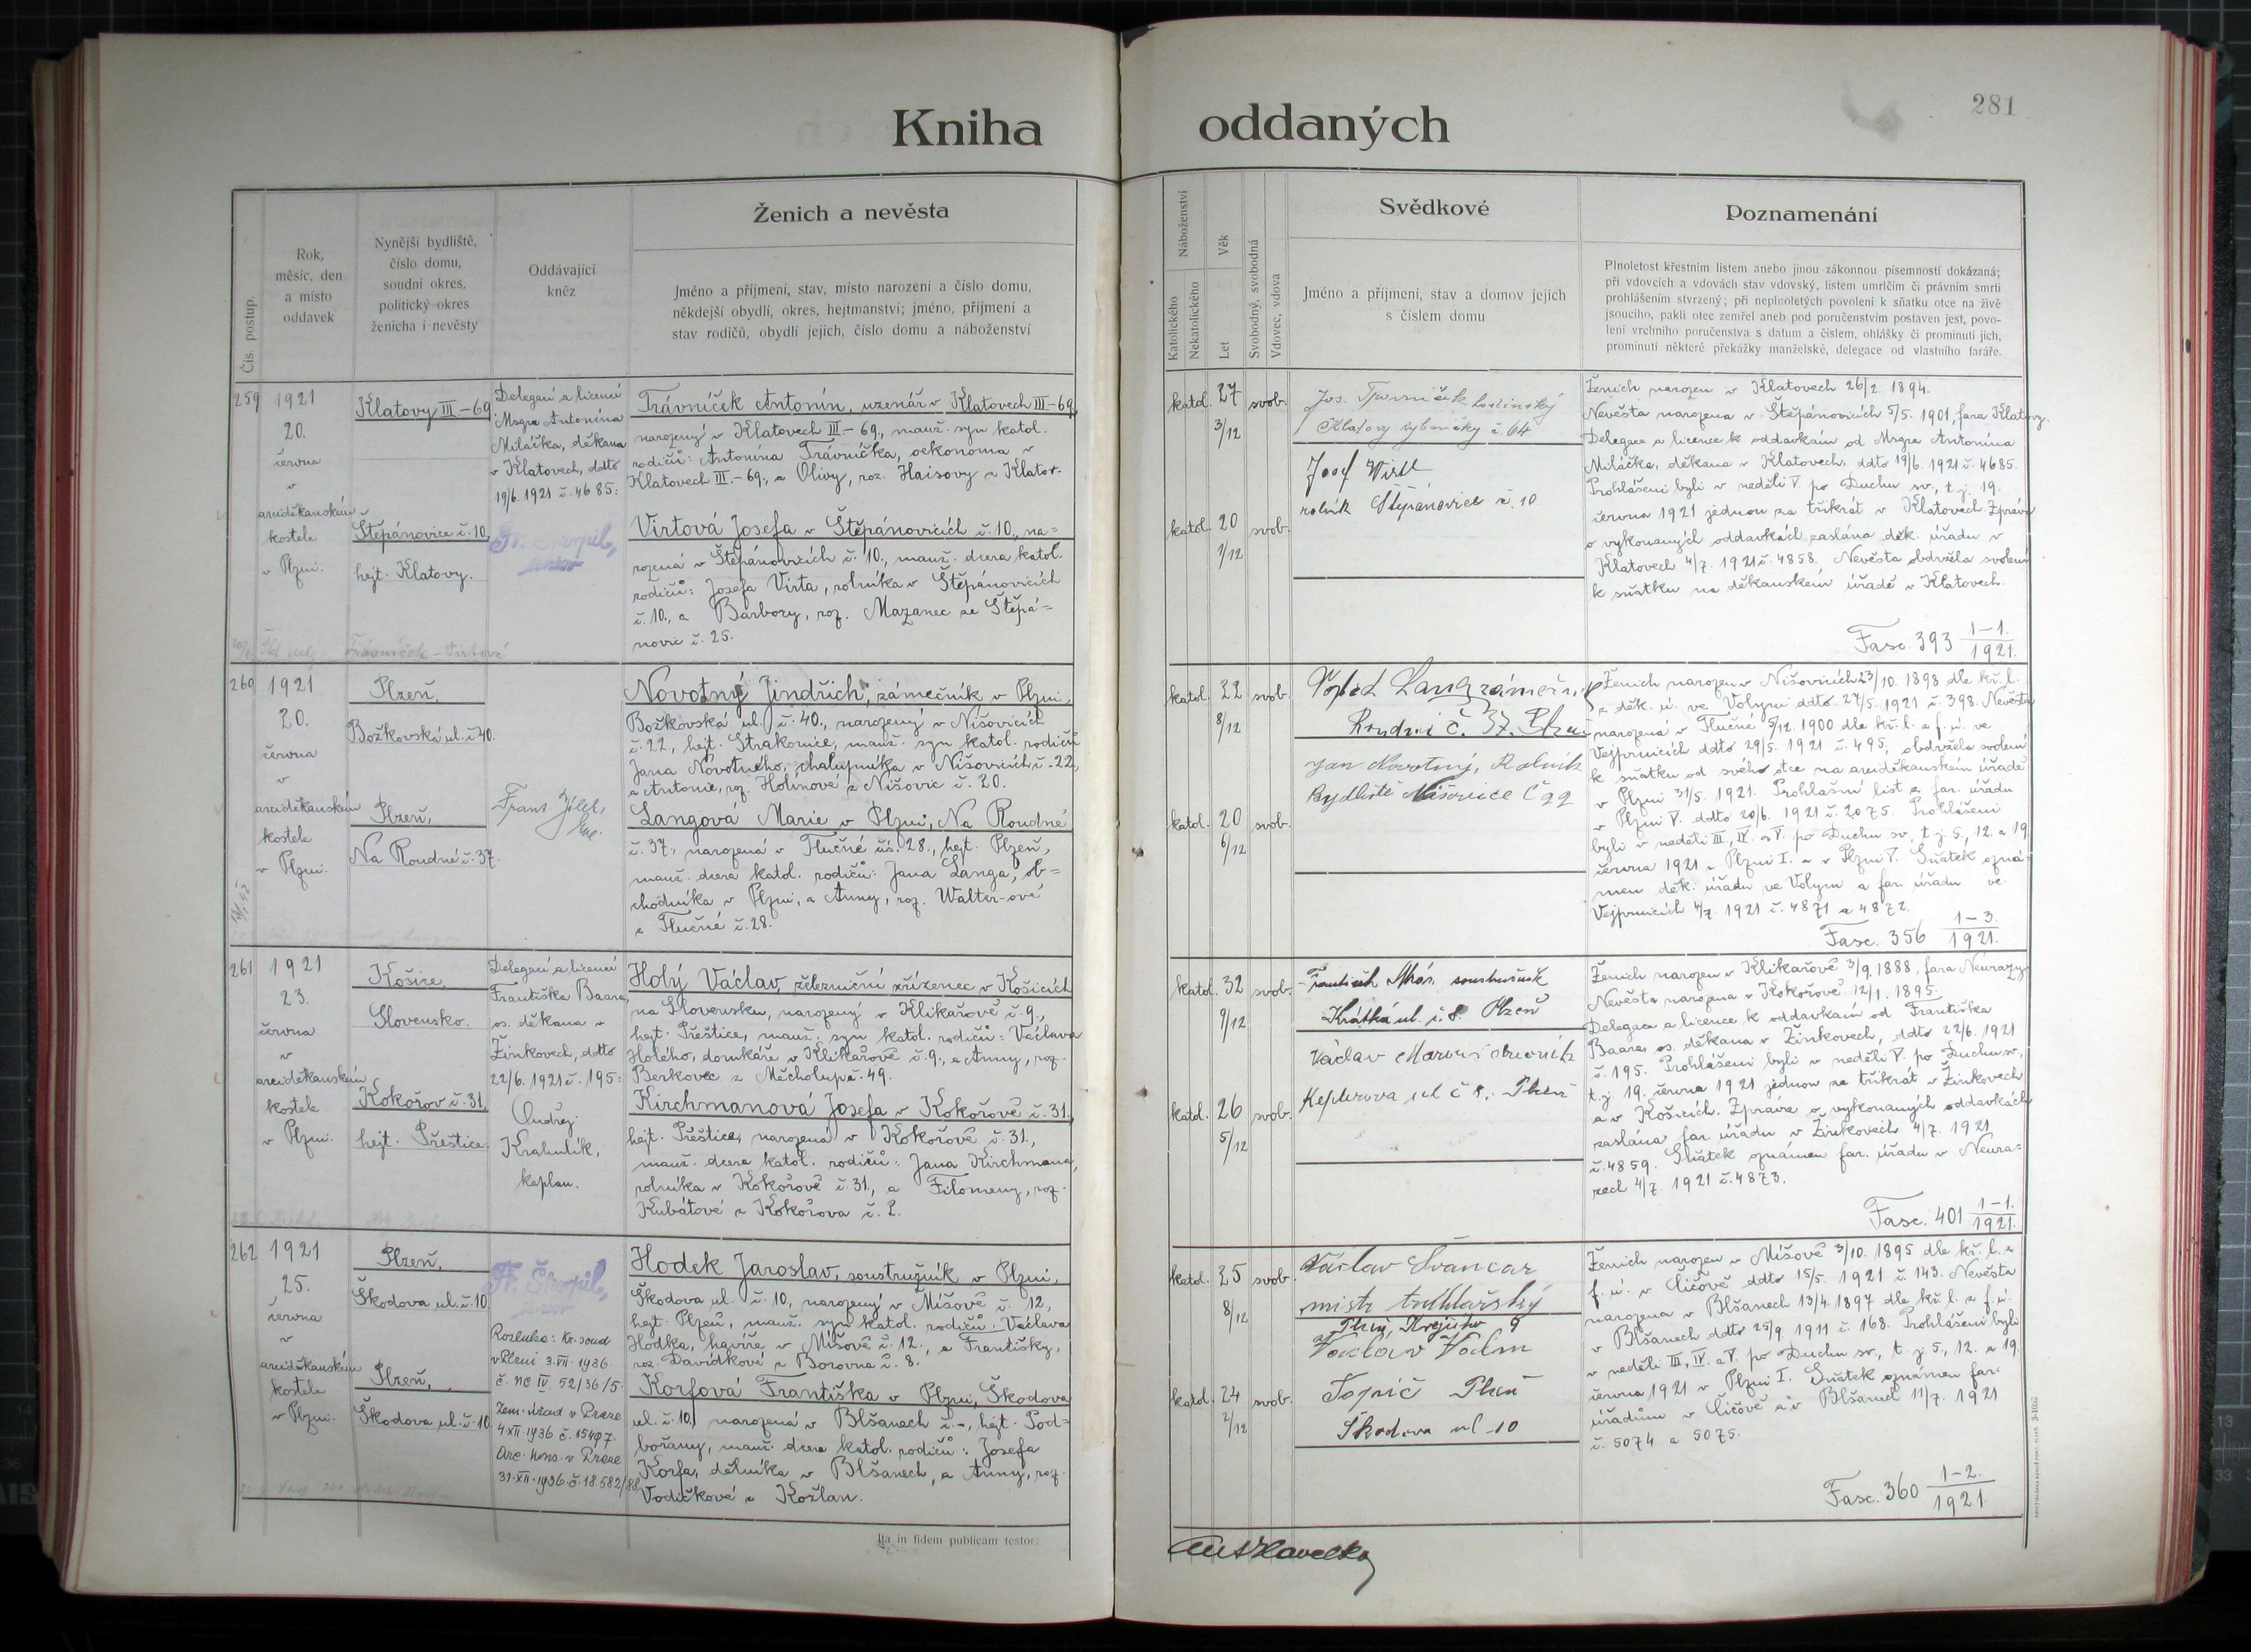 281
Kniha oddaných
Čís. postup.
Rok,
měsíc, den
a místo
oddavek
Nynější bydliště,
číslo domu,
soudní okres,
politický okres
ženicha i nevěsty
Oddávající
kněz
Ženich a nevěsta
Jméno a příjmení, stav, místo narození a číslo domu,
někdejší obydlí, okres, hejtmanství; jméno, příjmení a
stav rodičů, obydlí jejich, číslo domu a náboženství
Náboženství
Katolického
Nekatolického
Věk
Let
Svobodný, svobodná
Vdovec, vdova
Svědkové
Jméno a příjmení, stav a domov jejich
s číslem domu
Poznamenání
Plnoletost křestním listem anebo jinou zákonnou písemností dokázaná;
při vdovcích a vdovách stav vdovský, listem úmrlčím či právním smrti
prohlášením stvrzený; při neplnoletých povolení k sňatku otce na živě
jsoucího, pakli otec zemřel aneb pod poručenstvím postaven jest, povo-
lení vrchního poručenstva s datum a číslem, ohlášky či prominutí jich,
prominutí některé překážky manželské, delegace od vlastního faráře.
259
1921
20.
června
v
arciděkanském
kostele
v Plzni.
Klatovy III.-69
Štěpánovice č. 10,
hejt. Klatovy.
Delegací a licencí
Msgra Antonína
Miláčka, děkana
v Klatovech, ddto
19/6. 1921 č. 4685:
Fr. Škorpil,
Trávníček Antonín, uzenář v Klatovech III-69,
narozený v Klatovech III.-69., manž. syn katol.
rodičů: Antonína Trávníčka, oekonoma v
Klatovech III.-69., a Olivy, roz. Haisovy z Klatov.
Virtová Josefa v Štěpánovicích č. 10., na=
rozená v Štěpánovicích č. 10., manž. dcera katol.
rodičů: Josefa Virta, rolníka v Štěpánovicích
č. 10., a Barbory, roz. Mazanec ze Štěpá=
novic č. 25.
katol. 27 svob.
3/12
katol. 20 svob.
1/12
Jos. Trávníček hostinský
Klatovy rybníčky č. 64
Josef Virt
rolník Štěpánovice č. 10
Ženich narozen v Klatovech 26/2. 1894.
Nevěsta narozena v Štěpánovicích 5/5. 1901, fara Klatovy.
Delegace a licence k oddavkám od Msgra Antonína
Miláčka, děkana v Klatovech, ddto 19/6. 1921 č. 4685.
Prohlášeni byli v neděli V. po Duchu sv., t. j. 19.
června 1921 jednou za třikrát v Klatovech. Zpráva
o vykonaných oddavkách zaslána děk. úřadu v
Klatovech 4/7. 1921 č. 4858. Nevěsta obdržela svolení
k sňatku na děkanském úřadě v Klatovech.
Fasc. 393 1-1./1921.
260
1921
20.
června
v
arciděkanském
kostele
v Plzni.
Plzeň,
Božkovská ul. č. 40.
Plzeň,
Na Roudné č. 37.
Novotný Jindřich, zámečník v Plzni,
Božkovská ul. č. 40., narozený v Nišovicích
č. 22, hejt. Strakonice, manž. syn katol. rodičů
Jana Novotného, chalupníka v Nišovicích č. 22,
a Antonie, roz. Holínové z Nišovic č. 20.
Langová Marie v Plzni, Na Roudné
č. 37., narozená v Tlučné čís. 28., hejt. Plzeň,
manž. dcera katol. rodičů: Jana Langa, ob=
chodníka v Plzni, a Anny, roz. Walter-ové
z Tlučné č. 28.
katol. 22 svob.
8/12
katol. 20 svob.
6/12
Roudni č. 37.
Jan Novotný, Rolník
Bydliště Nišovice č 22
Ženich narozen v Nišovicích 23/10. 1898 dle kř. l.
z děk. ú. ve Volyni ddto 27/5. 1921 č. 398. Nevěsta
narozena v Tlučné 5/12. 1900 dle kř. l. z f. ú. ve
Vejprnicích ddto 29/5. 1921 č. 495; obdržela svolení
k sňatku od svého otce na arciděkanském úřadě
v Plzni 31/5. 1921. Prohlašní list z far. úřadu
v Plzni V. ddto 20/6. 1921 č. 2075. Prohlášeni
byli v neděli III, IV. a V. po Duchu sv., t. j. 5., 12. a 19.
června 1921 v Plzni I. a v Plzni V. Sňatek ozná=
men děk. úřadu ve Volyni a far. úřadu ve
Vejprnicích 4/7. 1921 č. 4871 a 4872.
Fasc. 356 1-3./1921.
261
1921
23.
června
v
arciděkanském
kostele
v Plzni.
Košice,
Slovensko.
Kokořov č. 31,
hejt. Přeštice.
Delegací a licencí
Františka Baara,
os. děkana v
Žinkovech, ddto
22/6. 1921 č. 195:
Ondřej
Krahulík,
kaplan.
Holý Václav, železniční zřízenec v Košicích
na Slovensku, narozený v Klikařově č. 9.,
hejt. Přeštice, manž. syn katol. rodičů: Václava
Holého, domkáře v Klikařově č. 9., a Anny, roz.
Berkovec z Měcholup č. 49.
Kirchmanová Josefa v Kokořově č. 31.,
hejt. Přeštice, narozená v Kokořově č. 31.,
manž. dcera katol. rodičů: Jana Kirchmana,
rolníka v Kokořově č. 31., a Filomeny, roz.
Kubátové z Kokořova č. 2.
katol. 32 svob.
9/12
katol. 26 svob.
5/12
František soustružník
Krátká ul. č. 8. Plzeň
Václav obuvník
Keplerova ul č 8., Plzeň
Ženich narozen v Klikařově 3/9. 1888, fara Neurazy.
Nevěsta narozena v Kokořově 12/1. 1895.
Delegace a licence k oddavkám od Františka
Baara, os. děkana v Žinkovech, ddto 22/6. 1921
č. 195. Prohlášeni byli v neděli V. po Duchu sv.,
t. j. 19. června 1921 jednou za třikrát v Žinkovech
a v Košicích. Zpráva o vykonaných oddavkách
zaslána far. úřadu v Žinkovech 4/7. 1921
č. 4859. Sňatek oznámen far. úřadu v Neura=
zech 4/7. 1921 č. 4873.
Fasc. 401 1-1./1921.
262
1921
25.
června
v
arciděkanském
kostele
v Plzni.
Plzeň,
Škodova ul. č. 10
Plzeň,
Škodova ul. č. 10
Fr. Škorpil,
Rozluka: Kr. soud
v Plzni 3. VII. 1936.
č. Nc IV. 52/36/5.
Zem. úřad v Praze
4. XII. 1936 č. 15497.
Arc. kons. v Praze
31. XII. 1936. č. 18.582/
Hodek Jaroslav, soustružník v Plzni,
Škodova ul. č. 10, narozený v Míšově č. 12,
hejt. Plzeň, manž. syn katol. rodičů: Václava
Hodka, havíře v Míšově č. 12., a Františky,
roz. Davídkové z Borovna č. 8.
Korfová Františka v Plzni, Škodova
ul. č. 10, narozená v Blšanech č. -, hejt. Pod=
bořany, manž. dcera katol. rodičů: Josefa
Korfa, dělníka v Blšanech, a Anny, roz.
Vodičkové z Kožlan.
katol. 25 svob.
8/12
katol. 24 svob.
2/12
Václav Švancar
mistr truhlářský
Plzni, 9
Václav
Topič Plzeň
Škodova ul 10
Ženich narozen v Míšově 3/10. 1895 dle kř. l. z
f. ú. v Čičově ddto 15/5. 1921 č. 143. Nevěsta
narozena v Blšanech 13/4. 1897 dle kř. l. z f. ú.
v Blšanech ddto 25/9. 1911 č. 168. Prohlášeni byli
v neděli III, IV. a V. po Duchu sv., t. j. 5., 12. a 19.
června 1921 v Plzni I. Sňatek oznámen far.
úřadům v Čičově a v Blšanech 11/7. 1921
č. 5074 a 5075.
Fasc. 360 1-2./1921.
Ita in fidem publicam testor: